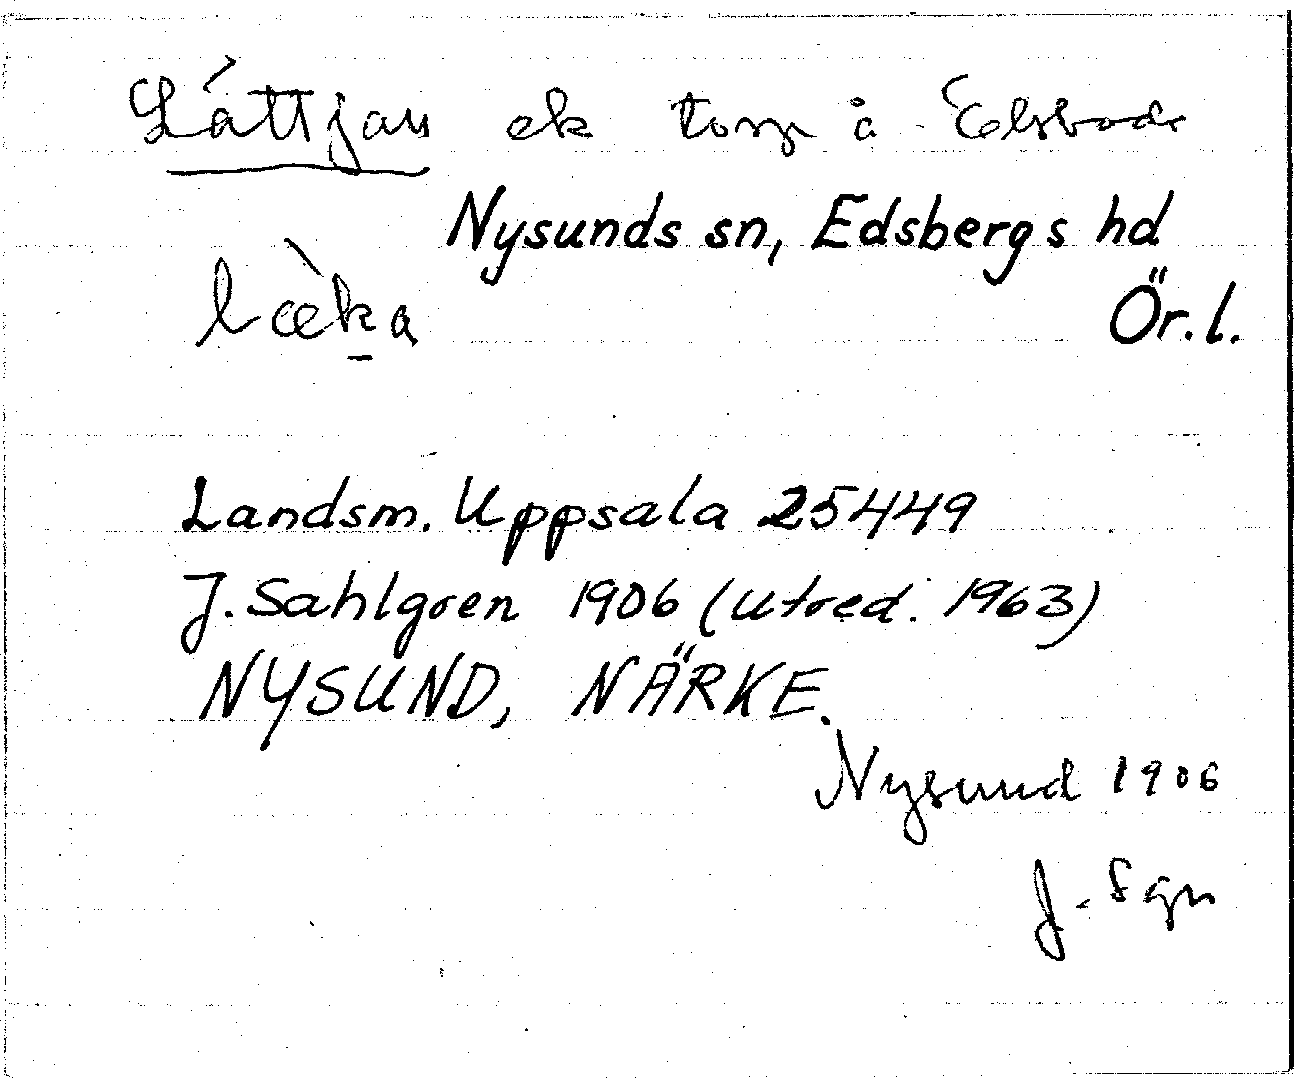 Láttjan ek torp å Elsbode
Nysunds sn, Edsbergs hd
Ör.l.
lœ̀ka
Landsm. Uppsala 25449
J. Sahlgren 1906 (utred. 1963)
NYSUND, NÄRKE.
Nysund 1906
J. Sgn